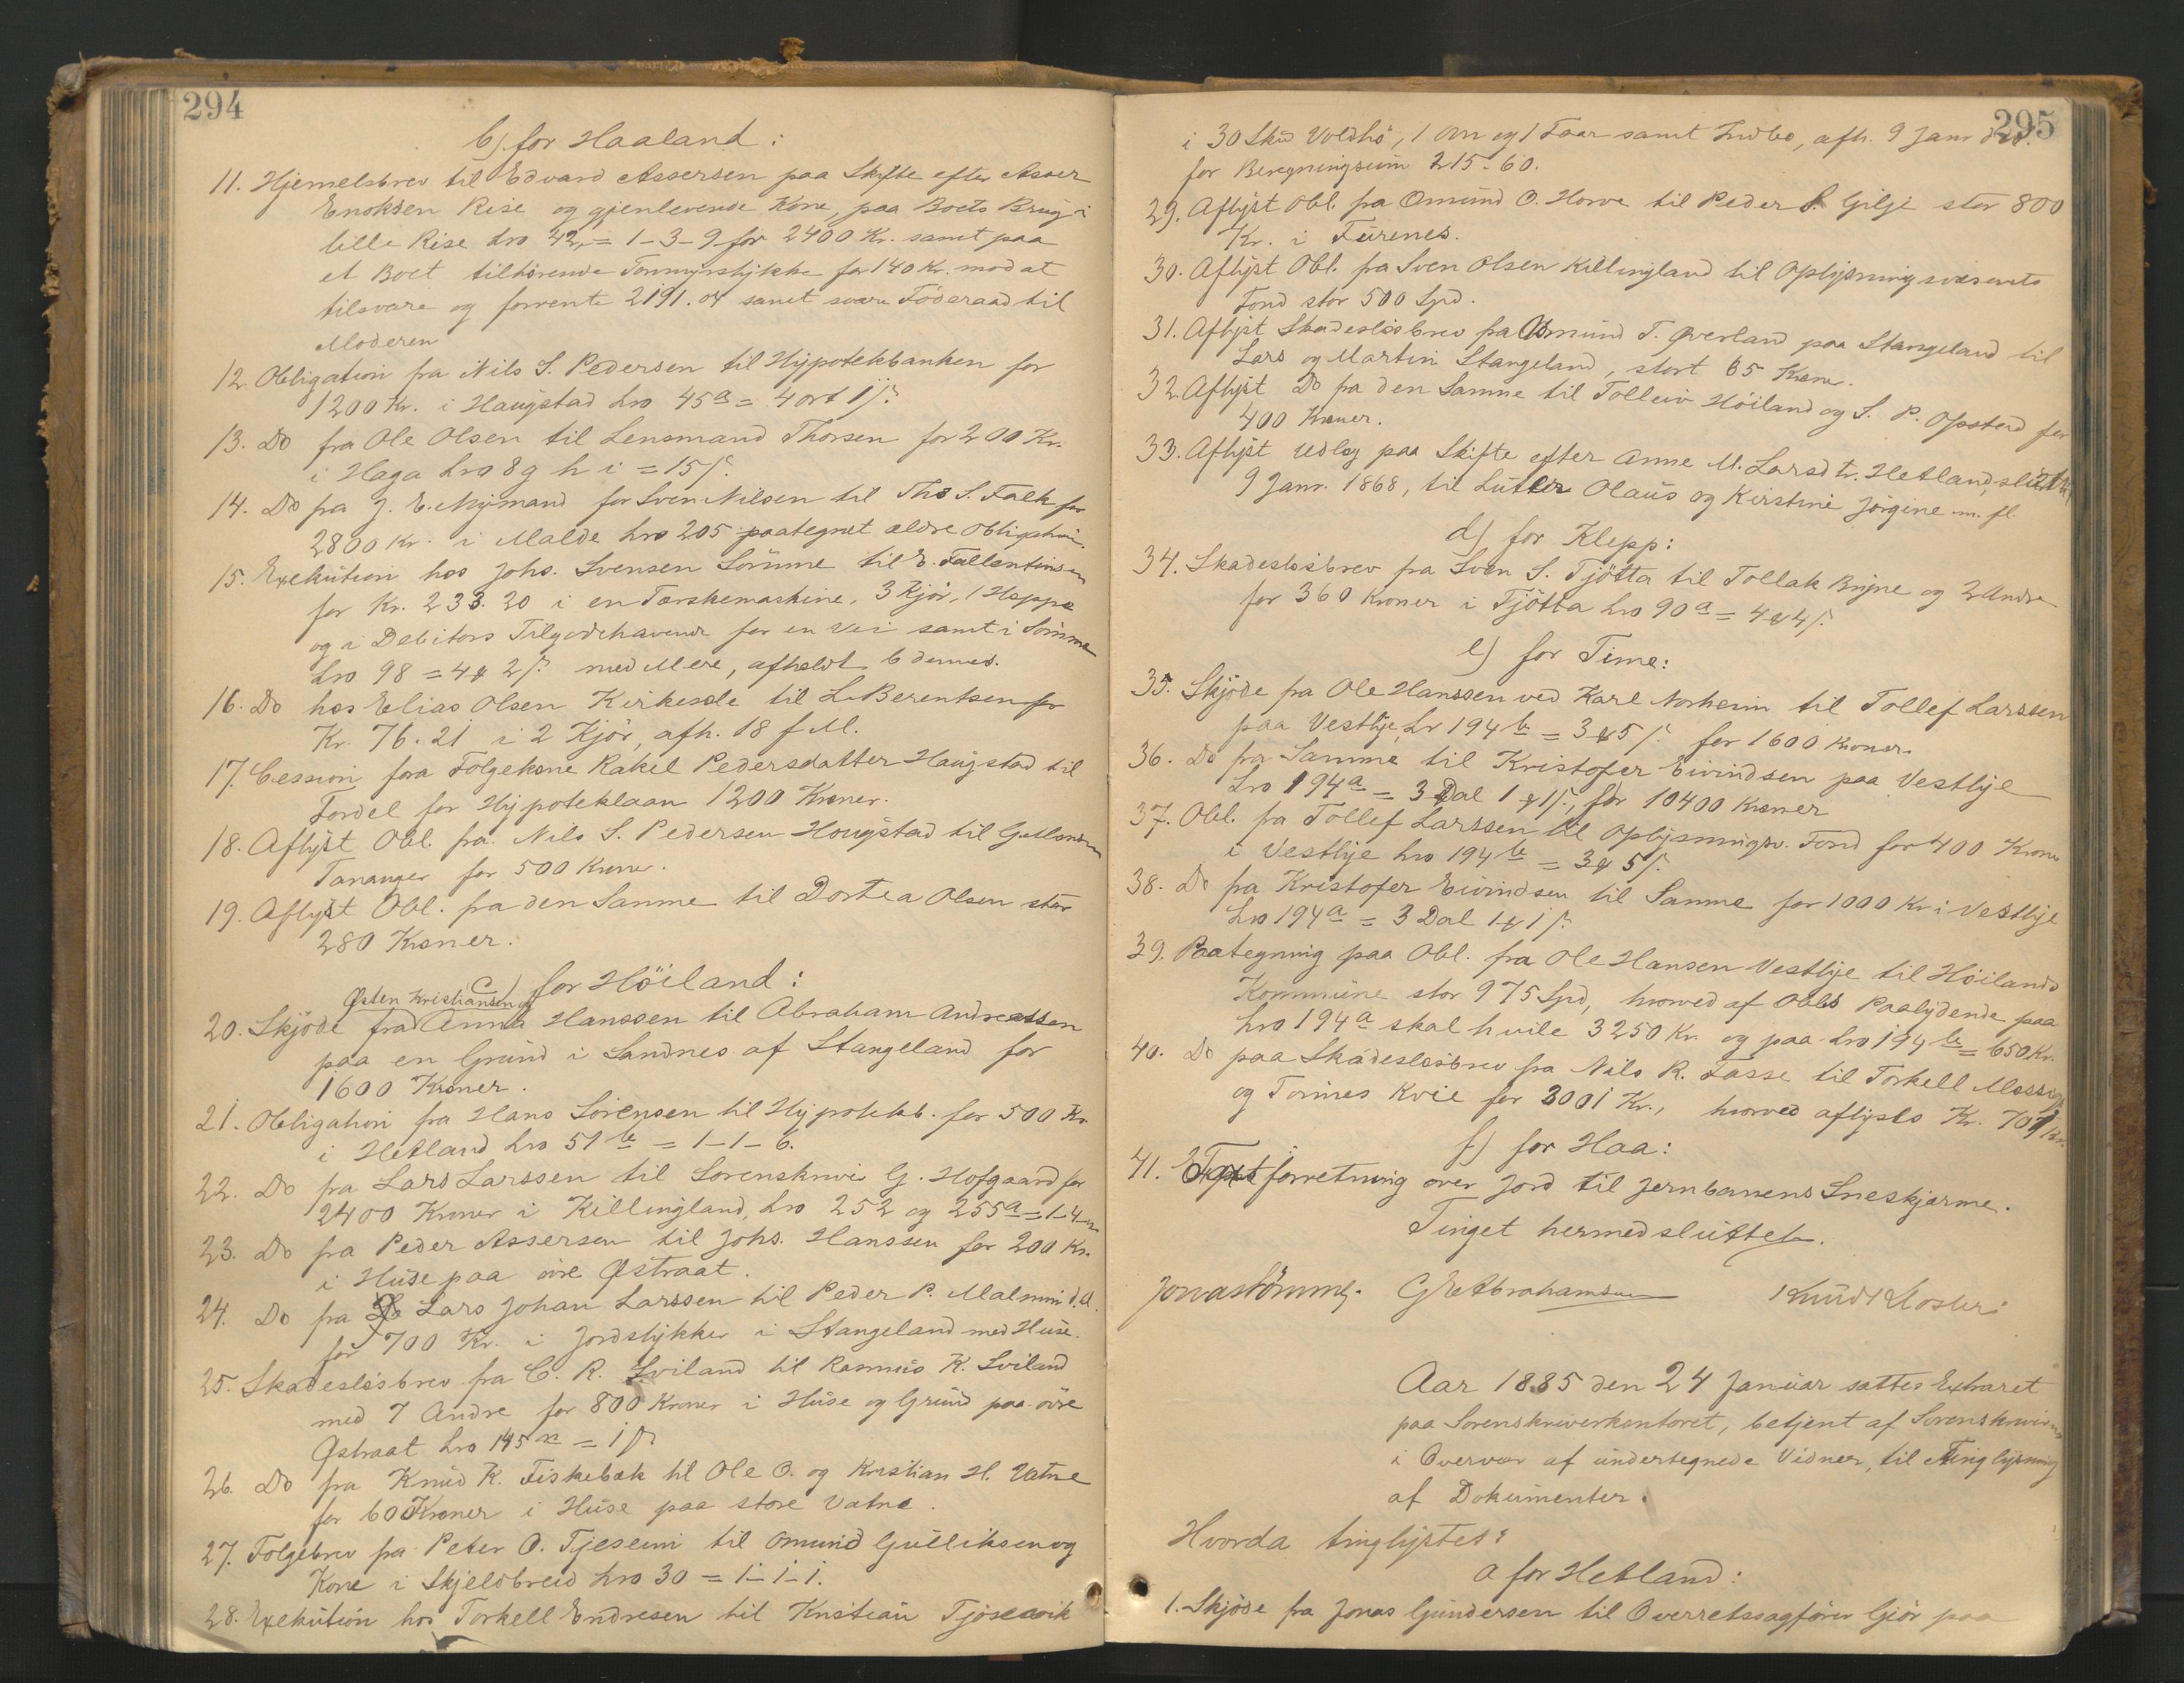 294
b) for Haaland:
11. Hjemelsbrev til Edvard Assersen paa Skifte efter Asser
Enoksen Rise og gjenlevende Kone, paa Boets Brug i
lille Rise Lno 42, = 1-3-9 for 2400 Kr. samt paa
et Boet tilhørende Torvmyrstykke for 140 Kr. mod at
tilsvare og forrente 2191.04 samt svare Föderaad til
Moderen
12. Obligation fra Nils S. Pedersen til Hypotekbanken for
1200 Kr. i Haugstad Lno 45a = 4 ort 1 ß.
13. Do fra Ole Olsen til Lensmand Thorsen for 200 Kr.
i Haga Lno 8 g h i = 15 ß.
14. Do fra J. E. Nymand for Sven Nilsen til Ths S. Falk for
2800 Kr. i Malde Lno 205 paategnet ældre Obligation.
15. Exekution hos Johs. Svensen Sömme til E. Fallentinsen
for Kr. 233.20 i en Tærskemaskine, 3 Kjör, 1 Hoppe
og i Debitors Tilgodehavende for en Vei samt i Sömme
Lno 98 = 4 ort 2 ß. med Mere, afholdt 6 dennes.
16. Do hos Elias Olsen Kirkesole til L. Berentsen for
Kr. 76.21 i 2 Kjör, afh. 18 f M.
17. Cession fora Folgekone Rakel Pedersdatter Haugstad til
Fordel for Hypoteklaan 1200 Kroner.
18. Aflyst Obl. fra Nils S. Pedersen Hougstad til G. Monsen
Tananger for 500 Kroner.
19. Aflyst Obl. fra den Samme til Dortea Olsen stor
280 Kroner.
c) for Höiland:
Østen Kristiansen og
20. Skjöde fra Anna Hanssen til Abraham Andreassen
paa en Grund i Sandnes af Stangeland for
1600 Kroner.
21. Obligation fra Hans Sörensen til Hypotekb. for 500 Kr
i Hetland Lno 51 b = 1-1-6.
22. Do fra Lars Larssen til Sorenskriver G. Hofgaard for
2400 Kroner i Killingland, Lno 252 og 255a = 1-4-
23. Do fra Peder Assersen til Johs. Hanssen for 200 Kr.
i Huse paa övre Østraat.
24. Do fra Lars Johan Larssen til Peder P. Malmin d. æl.
for 700 Kr. i Jordstykker i Stangeland med Huse.
25. Skadeslösbrev fra C. R. Sviland til Rasmus K. Sviland
med 7 Andre for 800 Kroner i Huse og Grund paa övre
Østraat Lno 145 n = 1 ß
26. Do fra Knud K. Fiskebæk til Ole O. og Kristian H. Vatne
for 600 Kroner i Huse paa store Vatne.
27. Folgebrev fra Peter O. Tjeseim til Omund Gulliksen og
Kone i Skjeldbreid Lno 30 = 1-1-1.
28. Exekution hos Torkell Endresen til Kristian Tjösevik
295
i 30 Skd Voldhö, 1 An og 1 Faar samt Indbo, afh. 9 Janr d.
for Beregningsum 215.60.
29. Aflyst Obl. fra Omund O. Horve til Peder P. Gilje stor 800
Kr. i Furenes.
30. Aflyst Obl. fra Sven Olsen Killingland til Oplysningsvæsenets
Fond stor 500 Spd.
31. Aflyst Skadeslösbrev fra Osmund T. Överland paa Stangeland til
Lars og Martin Stangeland, stort 65 Kroner.
32. Aflyst Do fra den Samme til Tolleiv Höiland og S. P. Opstad for
400 Kroner.
33. Aflyst Udlæg paa Skifte efter Anne M. Larsdtr. Hetland, sluttet
9 Janr. 1868, til Lutter Olaus og Kirstine Jörgine m. fl.
d) for Klepp:
34. Skadeslösbrev fra Sven S. Tjötta til Tollak Bryne og 2 Andre
for 360 Kroner i Tjötta Lno 90a = 4 ort 4 ß.
e) for Time:
35. Skjöde fra Ole Hanssen ved Karl Norheim til Tollef Larssen
paa Vestlye, Lr 194 b = 3 ort 5 ß. for 1600 Kroner.
36. Do fra Samme til Kristofer Eivindsen paa Vestlye
Lno 194a = 3 Dal 1 ort 1 ß., for 10400 Kroner
37. Obl. fra Tollef Larssen til Oplysningsv. Fond for 400 Kroner
i Vestlye Lno 194 b = 3 ort 5 ß.
38. Do fra Kristofer Eivindsen til Samme for 1000 Kr i Vestlye
Lno 194a = 3 Dal 1 ort 1 ß.
39. Paategning paa Obl. fra Ole Hansen Vestlye til Höilands
Kommune stor 975 Spd, hvorved af Obls Paalydende paa
Lno 194a skal hvile 3250 Kr. og paa Lno 194 b = 650 Kr.
40. Do paa Skadeslösbrev fra Nils R. Tasse til Torkell Mossige
og Tönnes Kvie for 3001 Kr., hvorved aflyses Kr. 701 Kr.
f) for Haa:
41. forretning over Jord til Jernbanens Sneskjærme.
Tinget hermed sluttet.
Jonas Sömme. G E Abrahamsen Knud Kloster
Aar 1885 den 24 Januar sattes Extraret
paa Sorenskriverkontoret, betjent af Sorenskriveren
i Overvær af undertegnede Vidner, til Tinglysning
af Dokumenter.
Hvorda tinglystes:
a for Hetland:
1. Skjöde fra Jonas Gundersen til Overretssagförer Giör paa